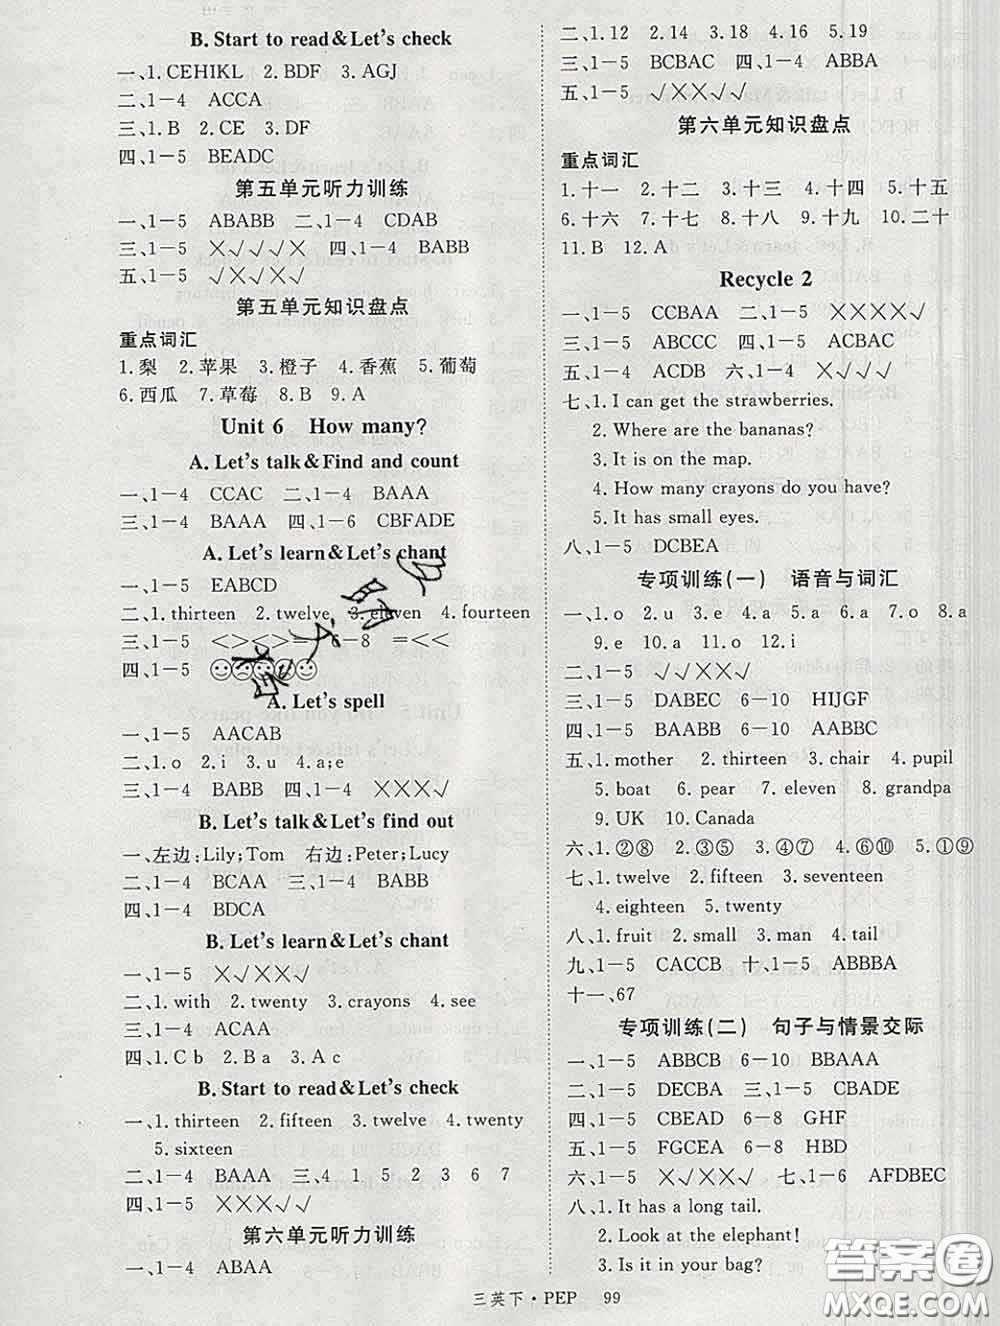 B. Start to read&Let's check
一、1. CEHIKL 2. BDF 3. AGJ
二、1-4 ACCA
三、1. B 2. CE 3. DF
四、1-5 BEADC
第五单元听力训练
一、1-5 ABABB 二、1-4 CDAB
三、1-5 ×√√√× 四、1-4 BABB
五、1-5 √×√×√
第五单元知识盘点
重点词汇
1. 梨 2. 苹果 3. 橙子 4. 香蕉 5. 葡萄
6. 西瓜 7. 草莓 8. B 9. A
Unit 6 How many?
A. Let's talk&Find and count
一、1-4 CCAC 二、1-4 BAAA
三、1-4 BAAA 四、1-6 CBFADE
A. Let's learn&Let's chant
一、1-5 EABCD
二、1. thirteen 2. twelve 3. eleven 4. fourteen
三、1-5 <><>= 6-8 =<<
四、1-5
A. Let's spell
一、1-5 AACAB
二、1. o 2. i 3. u 4. a;e
三、1-4 BABB 四、1-4 ×××√
B. Let's talk&Let's find out
一、左边:Lily;Tom 右边:Peter;Lucy
二、1-4 BCAA 三、1-4 BABB
四、1-4 BDCA
B. Let's learn&Let's chant
一、1-5 ×√××√
二、1. with 2. twenty 3. crayons 4. see
三、1-4 ACAA
四、1. C b 2. B a 3. A c
B. Start to read&Let's check
一、1. thirteen 2. fifteen 3. twelve 4. twenty
5. sixteen
二、1-4 BAAA 三、4 1 5 2 3 6 7
四、1-5 ×××√√
第六单元听力训练
一、1-4 ABAA
二、1. 12 2. 14 3. 18 4. 16 5. 19
三、1-5 BCBAC 四、1-4 ABBA
五、1-5 √××√√
第六单元知识盘点
重点词汇
1. 十一 2. 十二 3. 十三 4. 十四 5. 十五
6. 十六 7. 十七 8. 十八 9. 十九 10. 二十
11. B 12. A
Recycle 2
一、1-5 CCBAA 二、1-5 ××××√
三、1-5 ABCCC 四、1-5 ACBAC
五、1-4 ACDB 六、1-4 ×√√√
七、1. I can get the strawberries.
2. Where are the bananas?
3. It is on the map.
4. How many crayons do you have?
5. It has small eyes.
八、1-5 DCBEA
专项训练(一) 语音与词汇
一、1. o 2. u 3. e 4. a 5. a 6. a 7. o 8. a
9. e 10. a 11. o 12. i
二、1-5 √×√√×
三、1-5 DABEC 6-10 HIJGF
四、1-5 BAABB 6-10 AABBC
五、1. mother 2. thirteen 3. chair 4. pupil
5. boat 6. pear 7. eleven 8. grandpa
9. UK 10. Canada
六、1. ②⑧ 2. ③⑤ 3. ④⑦ 4. ⑥⑩ 5. ①⑨
七、1. twelve 2. fifteen 3. seventeen
4. eighteen 5. twenty
八、1. fruit 2. small 3. man 4. tail
九、1-5 CACCB 十、1-5 ABBBA
十一、67
专项训练(二) 句子与情景交际
一、1-5 ABBCB 6-10 BBAAA
二、1-5 DECBA 三、1-5 CBADE
四、1-5 CBEAD 6-8 GHF
五、1-5 FGCEA 6-8 HBD
六、1-5 ×√××√ 七、1-6 AFDBEC
八、1. It has a long tail.
2. Look at the elephant!
3. Is it in your bag?
三英下·PEP 99
答案圈
MXQE.COM